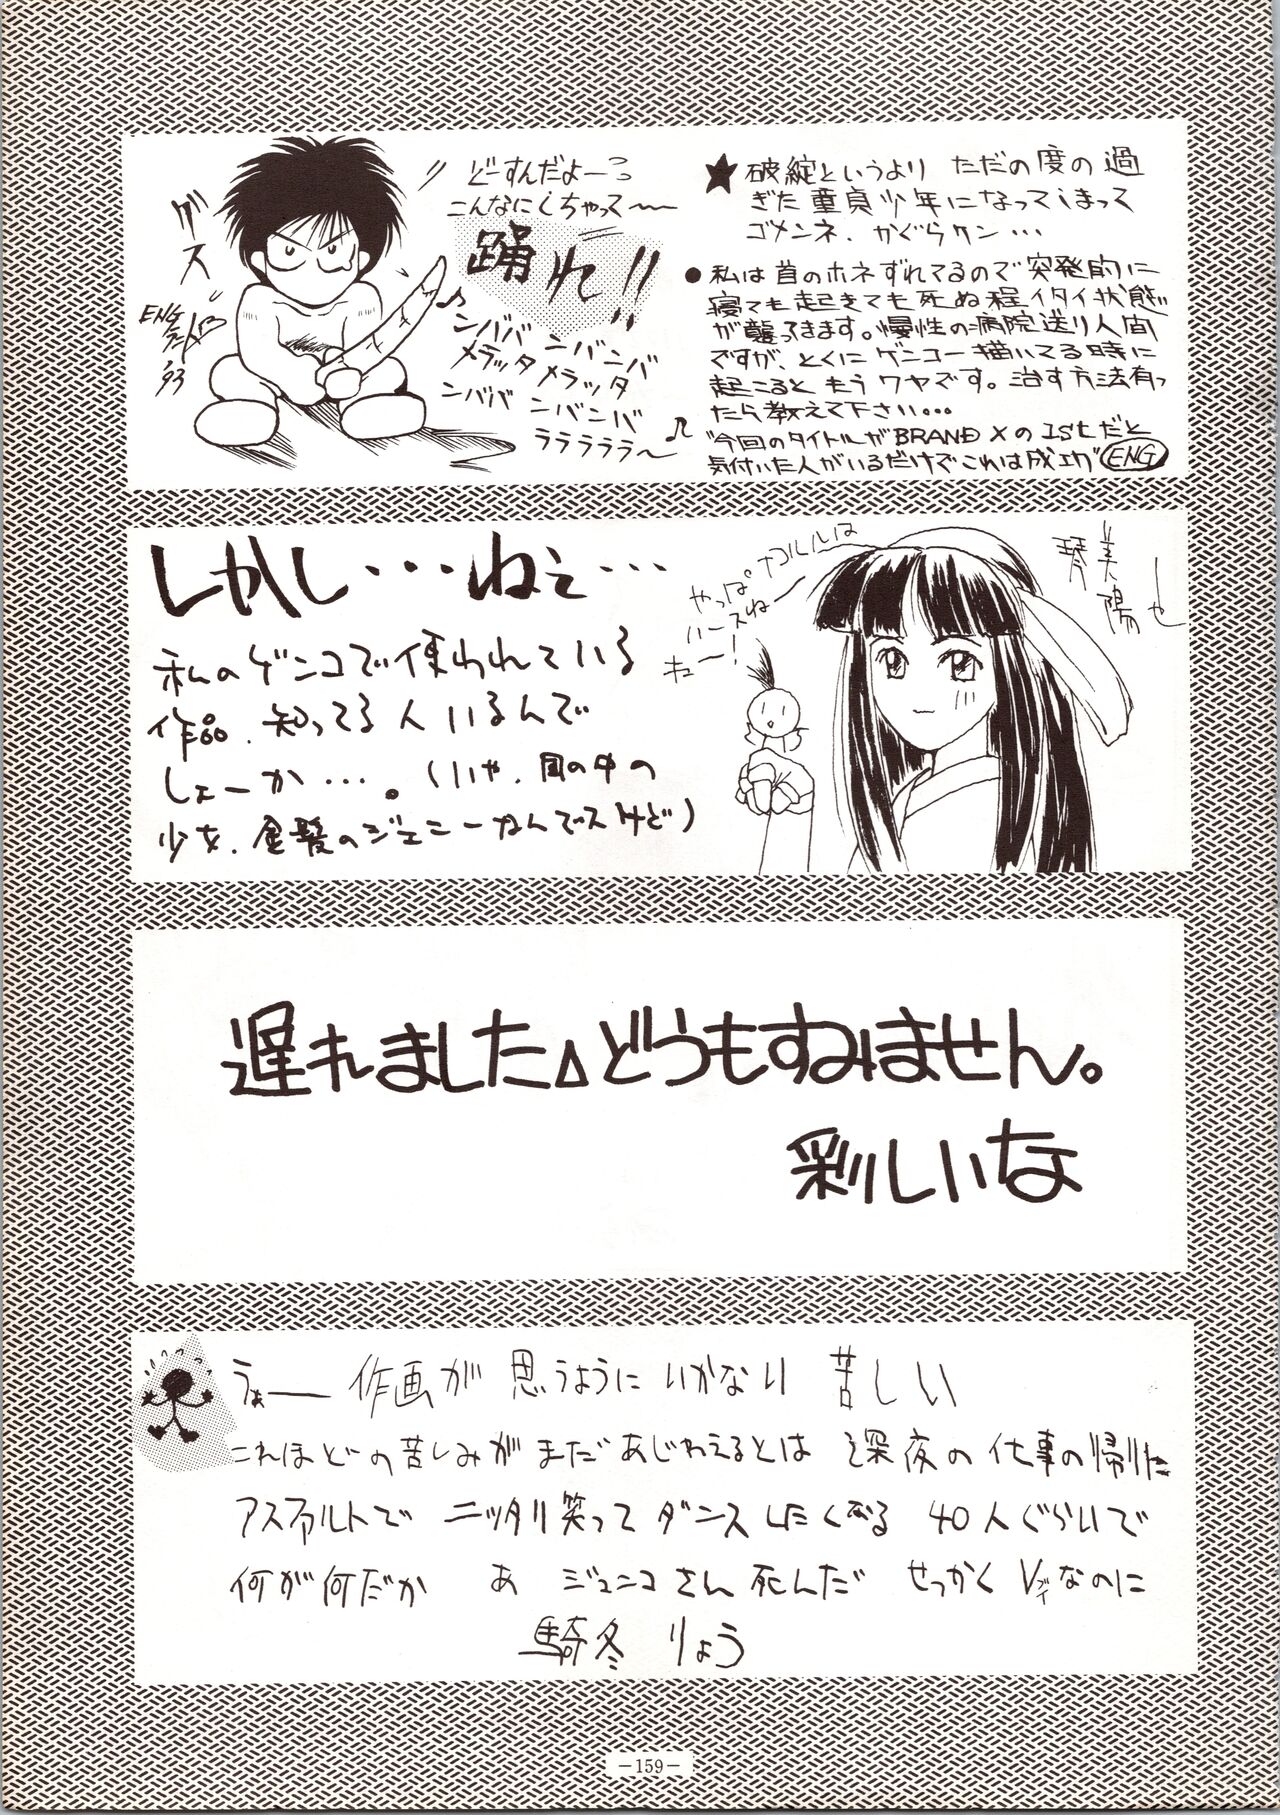 どーすんだよーっ
こんなにしちゃって〜〜
踊れ!!
グス
ENG
'93
ンババ ンバンバ
メラッタ メラッタ
ンババ ンバンバ
ララララララ〜
★ 破綻というより ただの度の過
ぎた童貞少年になってしまって
ゴメンネ、かぐらクン…
● 私は首のホネずれてるので突発的に
寝ても起きても死ぬ程イタイ状態
が襲ってきます。慢性の病院送り人間
ですが、とくにゲンコー描いてる時に
起こると もう ワヤです。治す方法有っ
たら教えて下さい…
今回のタイトルがBRAND Xの1stだと
気付いた人がいるだけでこれは成功 ENG
しかし・・・ねぇ・・・
私のゲンコで使われている
作品、知ってる人いるんで
しょーか…。(いや、図の中の
少女、金髪のジェニーなんでスけど)
ナコルルは
やっぱ
ハースね
キュー!
美陽
遅れました△どうもすみません。
彩しいな
うぁー 作画が 思うように いかない 苦しい
これほどの苦しみが まだ あじわえるとは 深夜の 仕事の帰りに
アスファルトで ニッタリ笑って ダンス したくなる 40人ぐらいで
何が何だか あ ジュンコさん 死んだ せっかく Vなのに
ブイ
騎冬 りょう
－159－